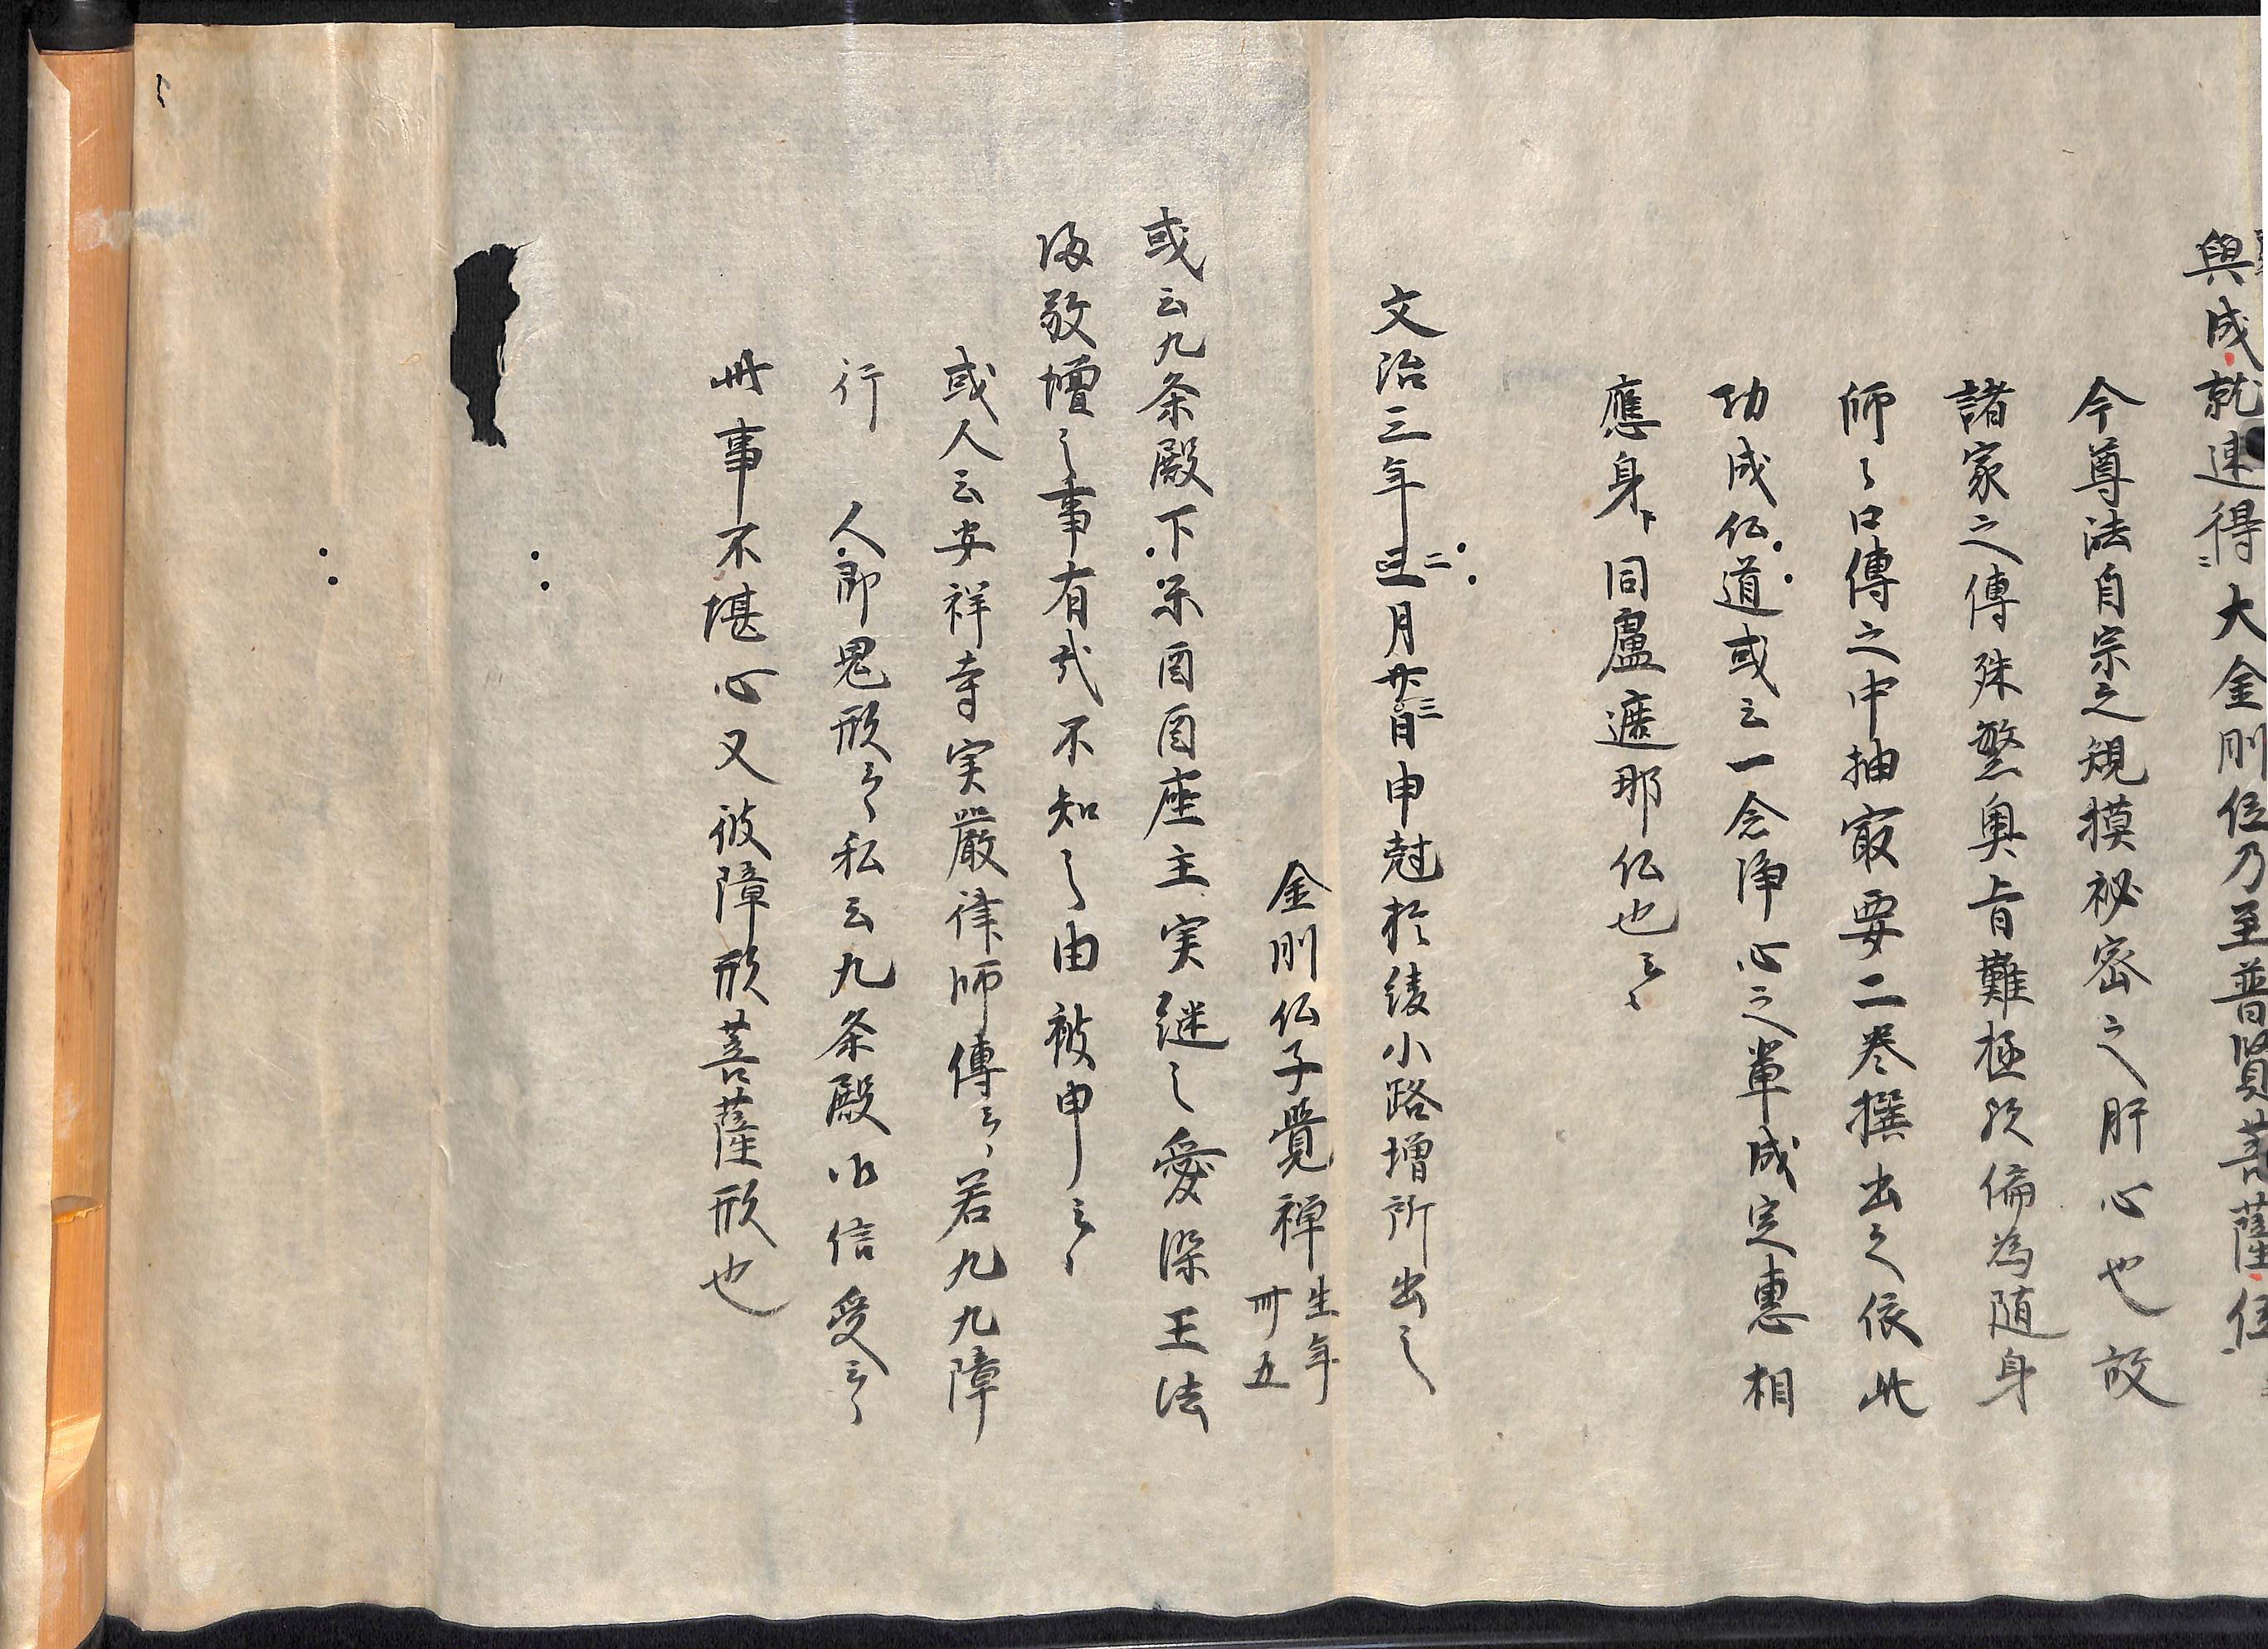 與成就速得大金剛位乃至普賢菩薩位
今尊法自宗之規摸祕密之肝心也故
諸家之傳殊繁奥旨難極仍偏為随身
師々口傳之中抽冣要二巻撰出之依此
功成仏道或云一念浄心之輩成定惠相
應身下同盧遮那仏也云々
文治三年正二月廿三日申尅於綾小路増所出之
金剛仏子覺禅生年卌五
或云九条殿下示酉酉座主実継之愛染王法
敬増之事有哉不知之由被申云々
或人云安祥寺実嚴律師傳云々若九九障
行人即鬼形云々私云九条殿御信受云々
此事不堪心又彼障形菩薩形也